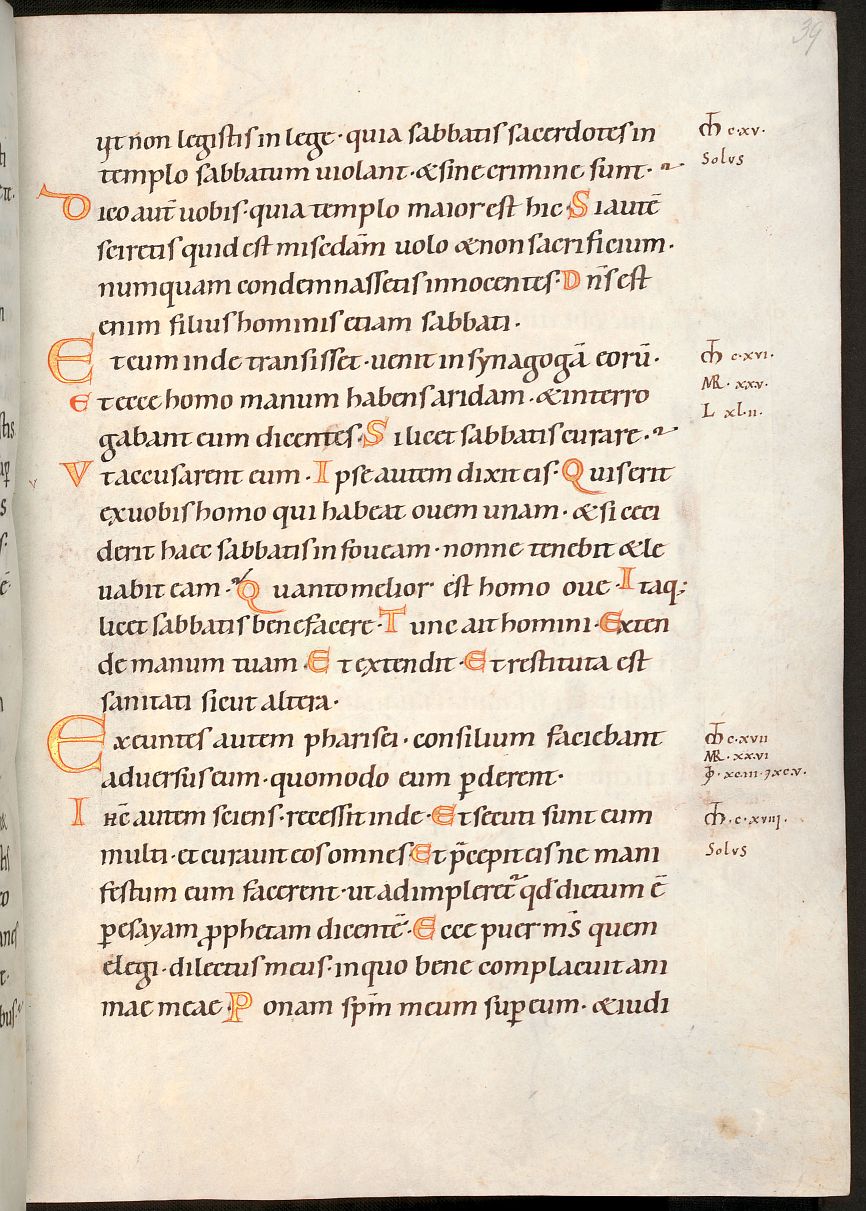 39
Vt non legistis in lege · quia sabbatis sacerdotes in
templo sabbatum uiolant · & sine crimine sunt ·
Dico aut̄ uobis · quia templo maior est hic · Si autē
sciretis quid est misc̄dam uolo & non sacrificium ·
numquam condemnassetis innocentes · Dn̄s est
enim filius hominis etiam sabbati ·
Et cum inde transisset · uenit in synagogā eorū ·
Et ecce homo manum habens aridam · & interro
gabant eum dicentes · Si licet sabbatis curare ·
Vt accusarent eum · Ipse autem dixit eis · Quis erit
ex uobis homo qui habeat ouem unam · & si ceci
derit haec sabbatis in foueam · nonne tenebit & le
uabit eam · Quanto melior est homo oue · Itaq;
licet sabbatis benefacere · Tunc ait homini · Exten
de manum tuam · Et extendit · Et restituta est
sanitati sicut altera ·
Exeuntes autem pharisei · consilium faciebant
aduersus eum · quomodo eum ꝑderent ·
Ihc̄ autem sciens · recessit inde · Et secuti sunt eum
multi · et curauit eos omnes · Et p̄cepit eis ne mani
festum eum facerent · ut adimpleret᷑ qd̓ dictum ē
ꝑ esayam ꝓphetam dicentē · Ecce puer m̄s quem
elegi · dilectus meus · in quo bene complacuit ani
mae meae · Ponam sp̄m meum suꝑ eum · & iudi
c·xv·
Solus
c·xvi·
MR · xxv·
L xl·ii·
c·xvii
MR · xxvi
xc·iii · 7xc·v·
·c·xviii·
Solus